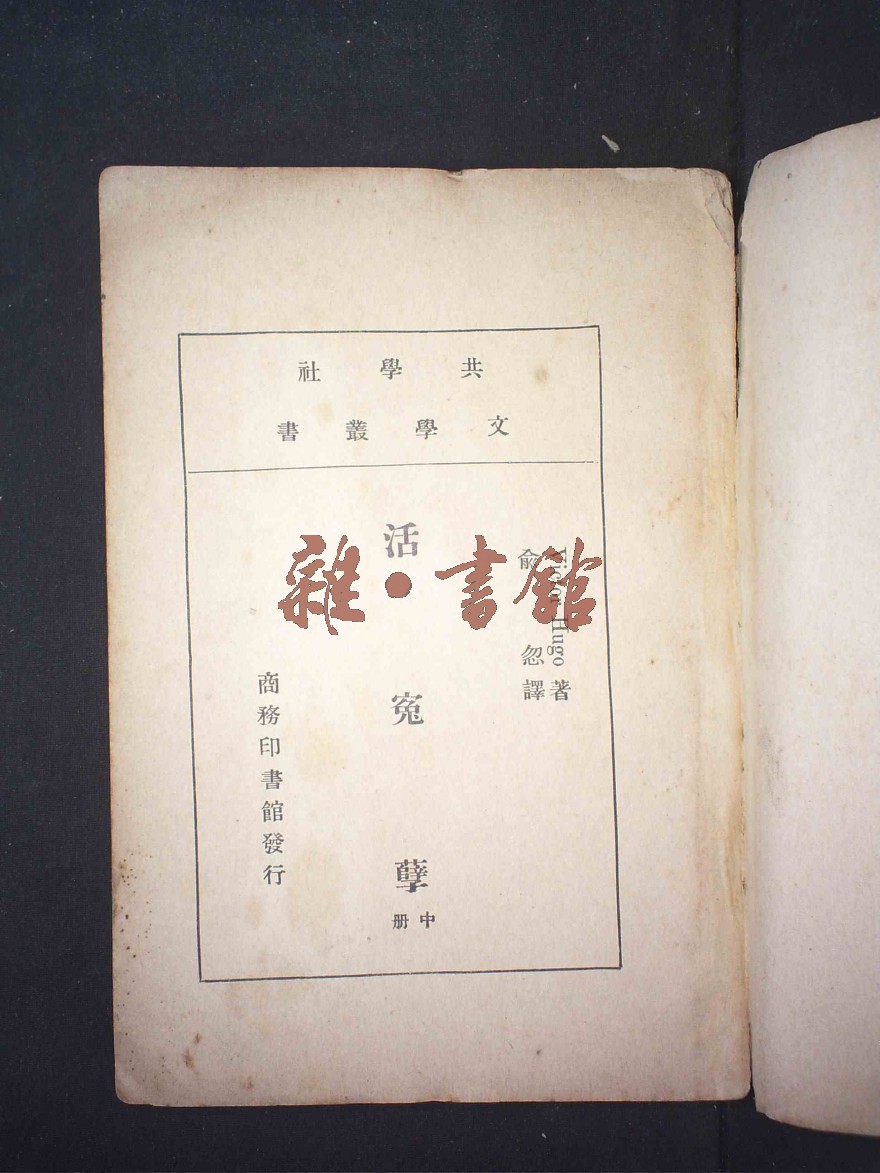 共學社
文學叢書
Victor Hugo 著
俞忽譯
活冤孽
中冊
商務印書館發行
雜·書館